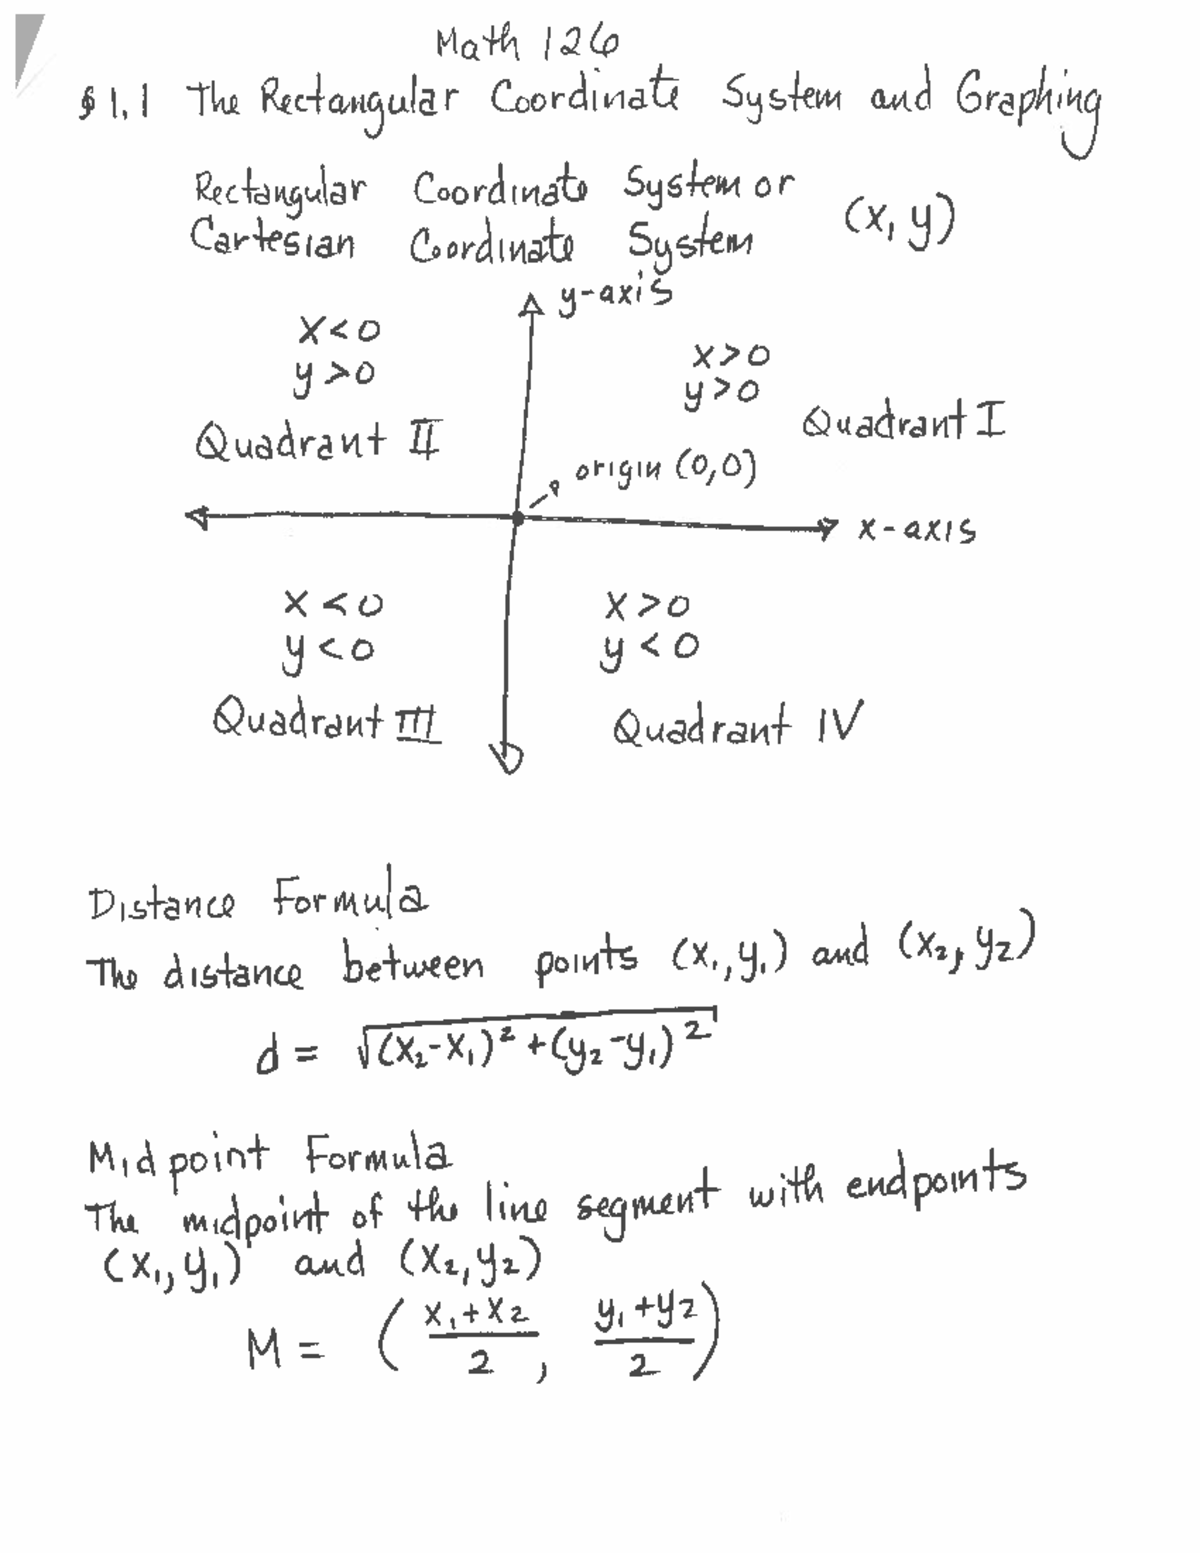 Math 126
§ 1.1 The Rectangular Coordinate System and Graphing
Rectangular Coordinate System or
Cartesian Coordinate System
(x, y)
y-axis
x<0
y>0
Quadrant II
x>0
y>0
Quadrant I
origin (0,0)
x-axis
x<0
y<0
Quadrant III
x>0
y<0
Quadrant IV
Distance Formula
The distance between points (x₁, y₁) and (x₂, y₂)
d = √(x₂-x₁)² + (y₂-y₁)²
Midpoint Formula
The midpoint of the line segment with endpoints
(x₁, y₁) and (x₂, y₂)
M = ( x₁+x₂ / 2 , y₁+y₂ / 2 )